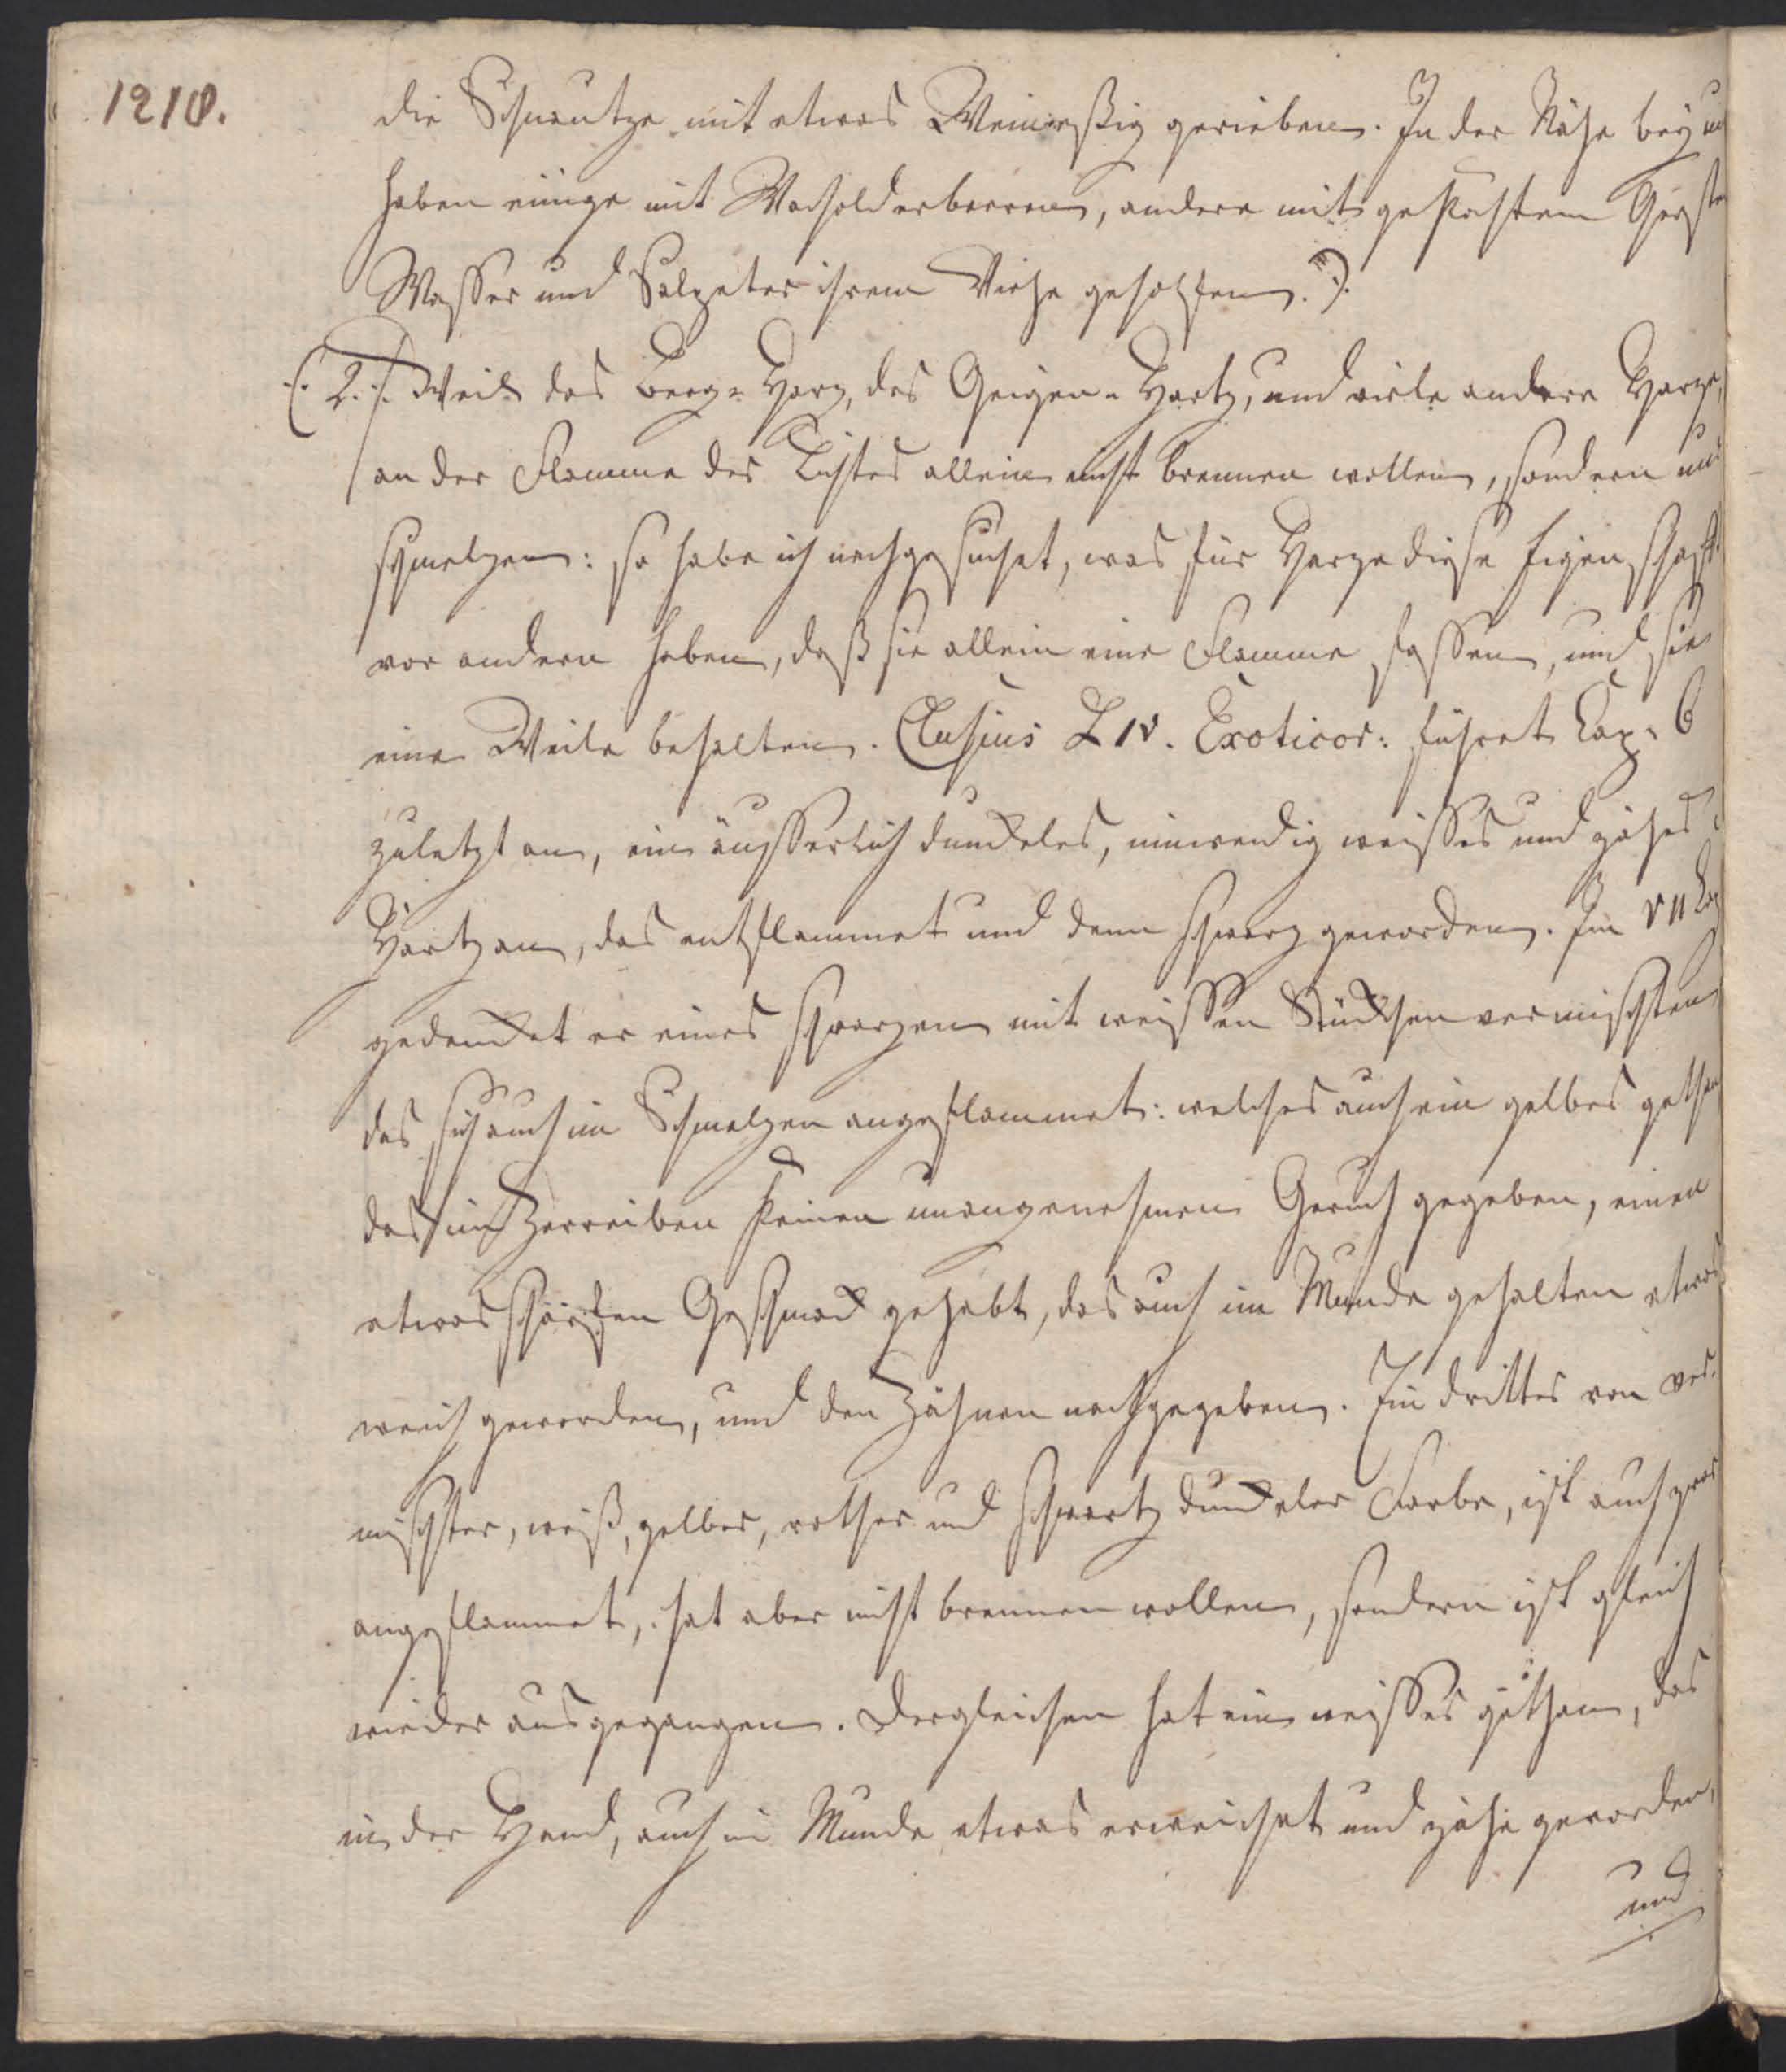 1218.
die Schnautze mit etwas Weineßig gerieben. In der Nähe bey
haben einige mit Wacholderbeeren, andere mit gekochtem Gersten
Wasser und Salpeter ihrem Viehe geholfen.).
(. 2. ). Weil das Berg-Harz, das Geigen-Hartz, und viele andere Harze,
an der Flamme des Lichtes allein nicht brennen wollen, sondern nur
schmelzen: so habe ich nachgesuchet, was für Harze diese Eigenschafft
vor andern haben, daß sie allein eine Flamme fassen, und sie
eine Weile behalten. Clusius L IV. Exoticor: führet Cap. 6
zuletzt an, ein äusserlich dunckeles, inwendig weisses und zähes
Hartz an, das entflammet und denn schwarz geworden. Im VII Cap
gedencket er eines schwarzen mit weissen Stückchen vermischten
das sich auch im Schmelzen angeflammet: welches auch ein gelbes gethan
das im Zerreiben keinen unangenehmen Geruch gegeben, einen
etwas scharfen Geschmack gehabt, das auch im Munde gehalten etwas
weich geworden, und den Zähnen nachgegeben. Ein drittes von ver-
mischter, weiß, gelber, rother und schwartz dunckeler Farbe, ist auch zwar
angeflammet, hat aber nicht brennen wollen, sondern ist gleich
wieder ausgegangen. Dergleichen hat ein weisses gethan, das
in der Hand, auch im Munde etwas erweichet und zähe geworden,
und